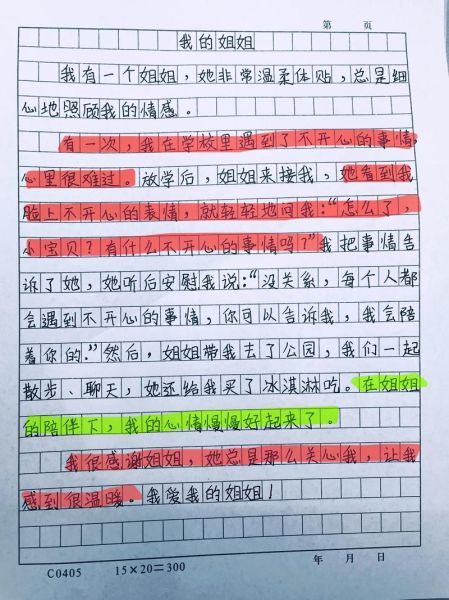 第 页
我的姐姐
我有一个姐姐，她非常温柔体贴，总是细
心地照顾我的情感。
有一次，我在学校里遇到了不开心的事情，
心里很难过。放学后，姐姐来接我，她看到我
脸上不开心的表情，就轻轻地问我：“怎么了，
小宝贝？有什么不开心的事情吗？”我把事情告
诉了她，她听后安慰我说：“没关系，每个人都
会遇到不开心的事情，你可以告诉我，我会陪
着你的.”然后，姐姐带我去了公园，我们一起
散步、聊天，她还给我买了冰淇淋吃。在姐姐
的陪伴下，我的心情慢慢好起来了。
我很感谢姐姐，她总是那么关心我，让我
感到很温暖。我爱我的姐姐！
C0405 15×20=300 年 月 日